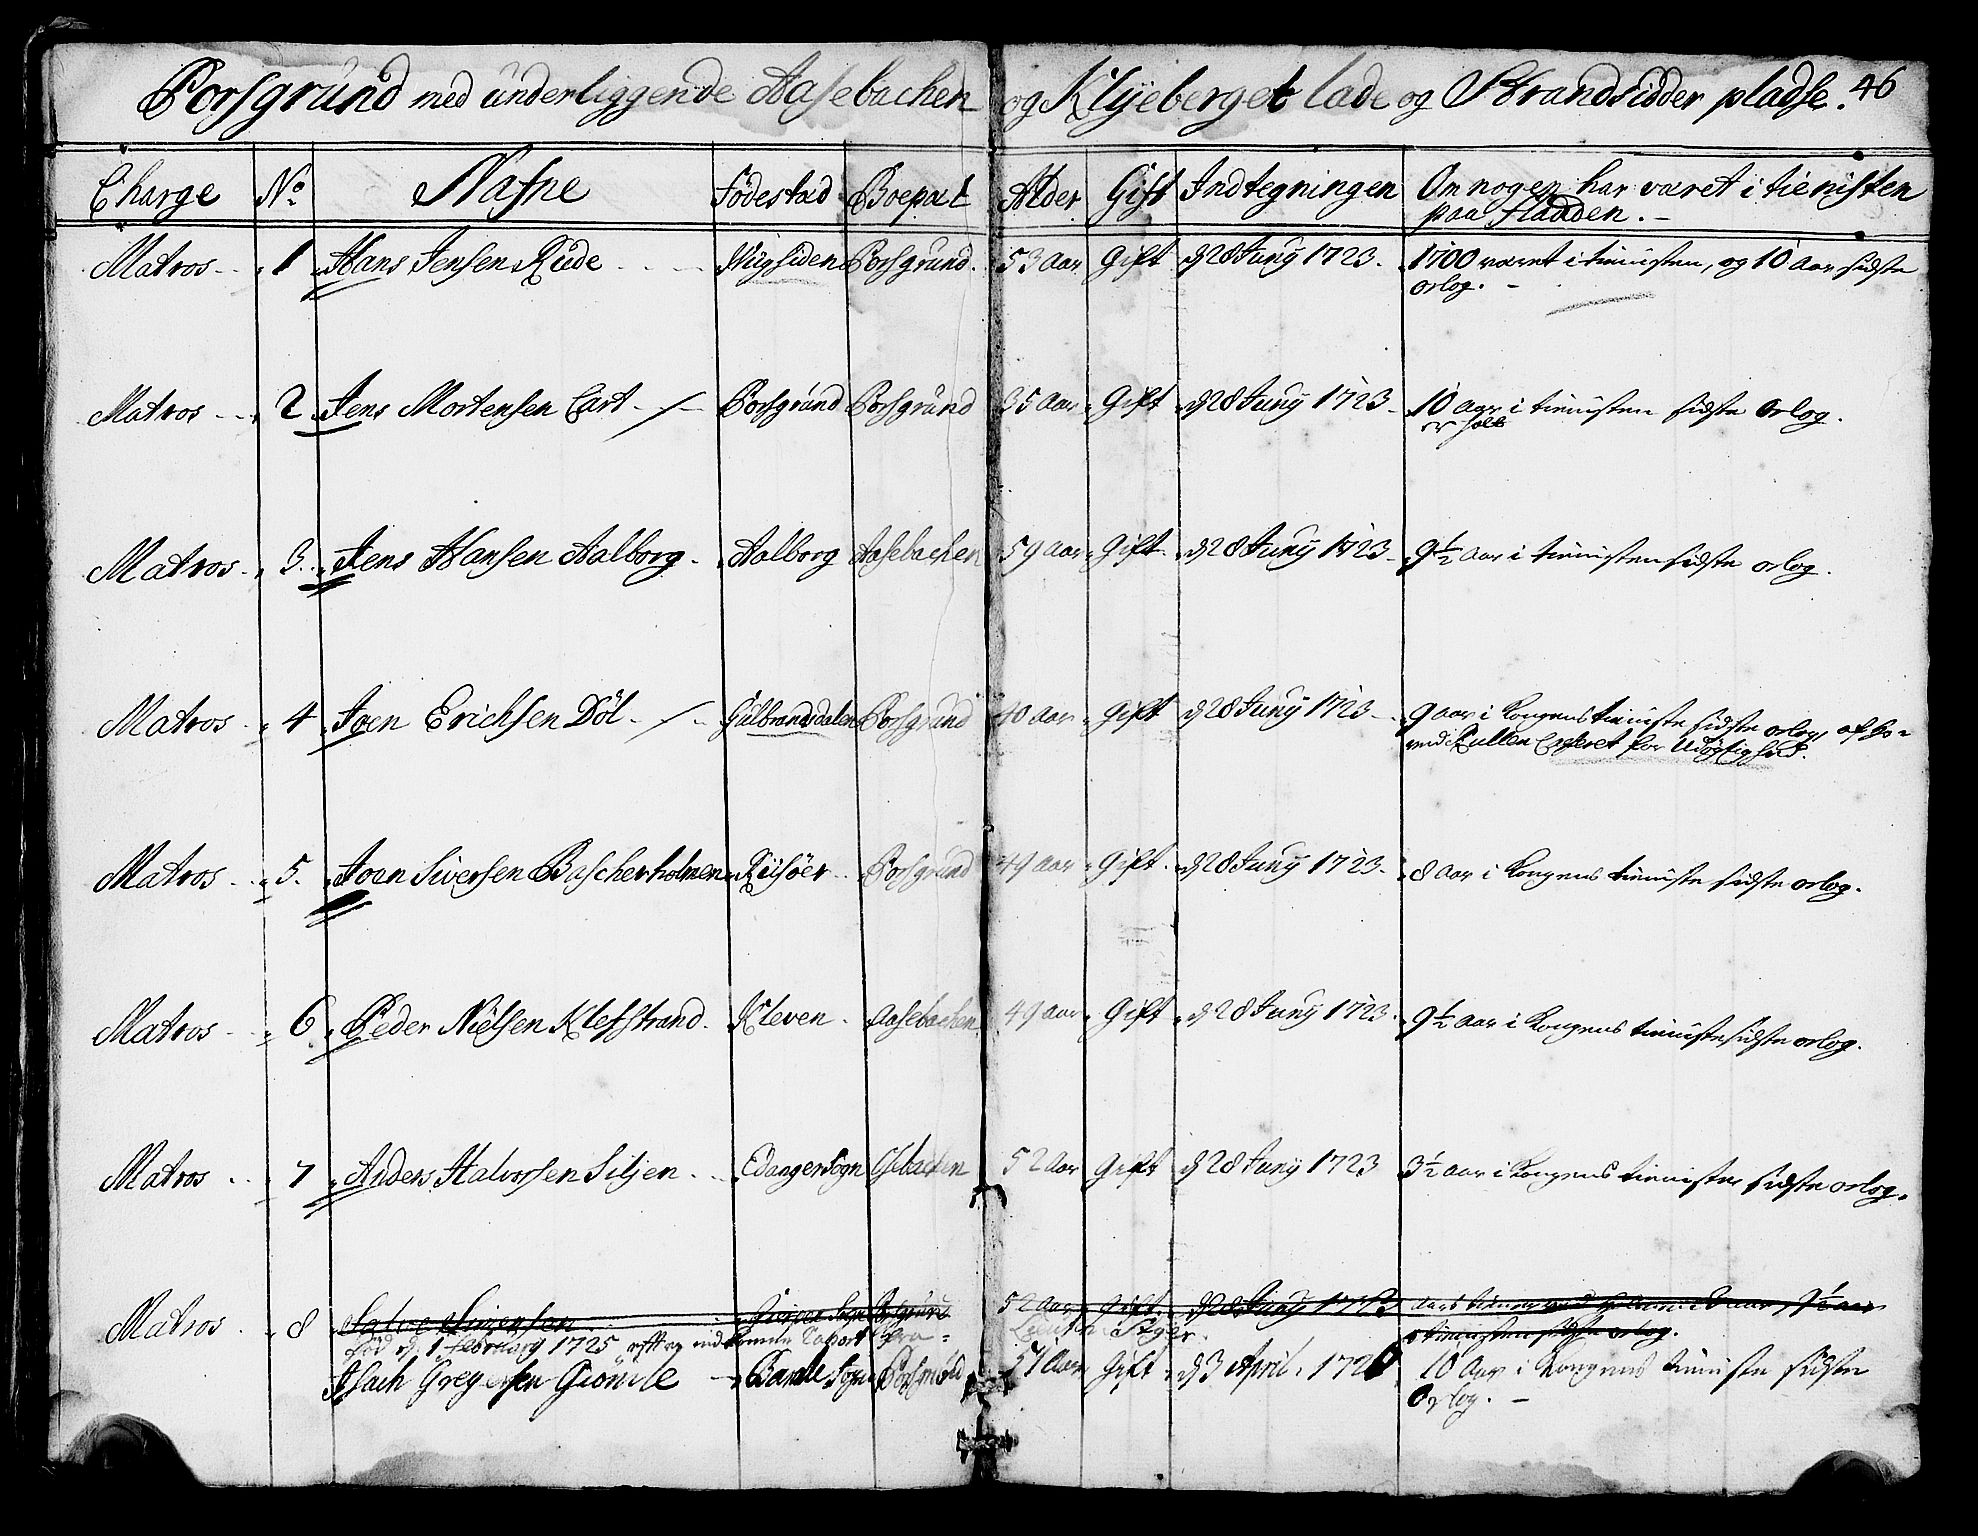 Porsgrund med underliggende Aasebachen og Klÿeberget lade og Strandsidder pladse. 46
Charge No Nafne Födestad Boepæl Alder Gift Indtegningen Om nogen har været i tienisten
paa fladden. -
Matros - 1 Hans Jensen Rude Porsgrund. 53 aar Gift d 28 Junÿ 1723. 1700 været i tienisten, og 10 aar sidste
orlog. -
Matros - 2 Jens Mortensen Cart Porsgrund Porsgrund 35 aar Gift d 28 Junÿ 1723 10 aar i tienisten sidste orlog.
Matros 3. Jens Hansen Aalborg. Aalborg Aasebachen 59 aar Gift d 28 Junÿ 1723 9½ aar i tienisten sidste orlog.
Matros 4 Joen Erichsen Döl Gulbrandsdalen Porsgrund 40 aar Gift d 28 Junÿ 1723 9 aar i Kongens tieniste sidste orlog, af ho-
ved Rullen Casseret for Udögtighed.
Matros 5. Joen Siversen Bascherholmen Riisöer Porsgrund 49 aar Gift. d 28 Junÿ 1723. 8 aar i Kongens tieniste sidste orlog.
Matros 6 Peder Nielsen Klefstrand. Kleven. Aasebachen 49 aar Gift d 28 Junÿ 1723. 9½ aar i Kongens tieniste sidste orlog.
Matros 7 Anders Halvorsen Siljen. Edanger Sogn Asebachen 52 aar Gift d 28 Junÿ 1723 3½ aar i Kongens tienister sidste orlog.
Matros 8 Salve Siversen Porsgrund 52 aar Gift d 28 Junÿ 1723
tienisten sidste orlog.
död d. 1 februarÿ 1725 efter indkomne Raport fra
Isach Gregersen Giömle Bamle Sogn Porsgrund 51 aar Gift d 3 April 1726 10 aar i Kongens tieniste sidste
Orlog. -